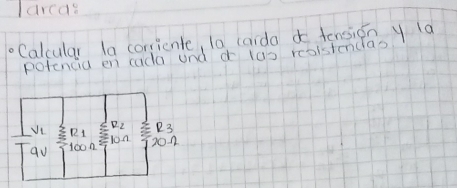 Tarea:
• Calcular la corriente, la caida de tensión y la
potencia en cada una de las resistencias
V1
9V
R1
100Ω
R2
10Ω
R3
20Ω